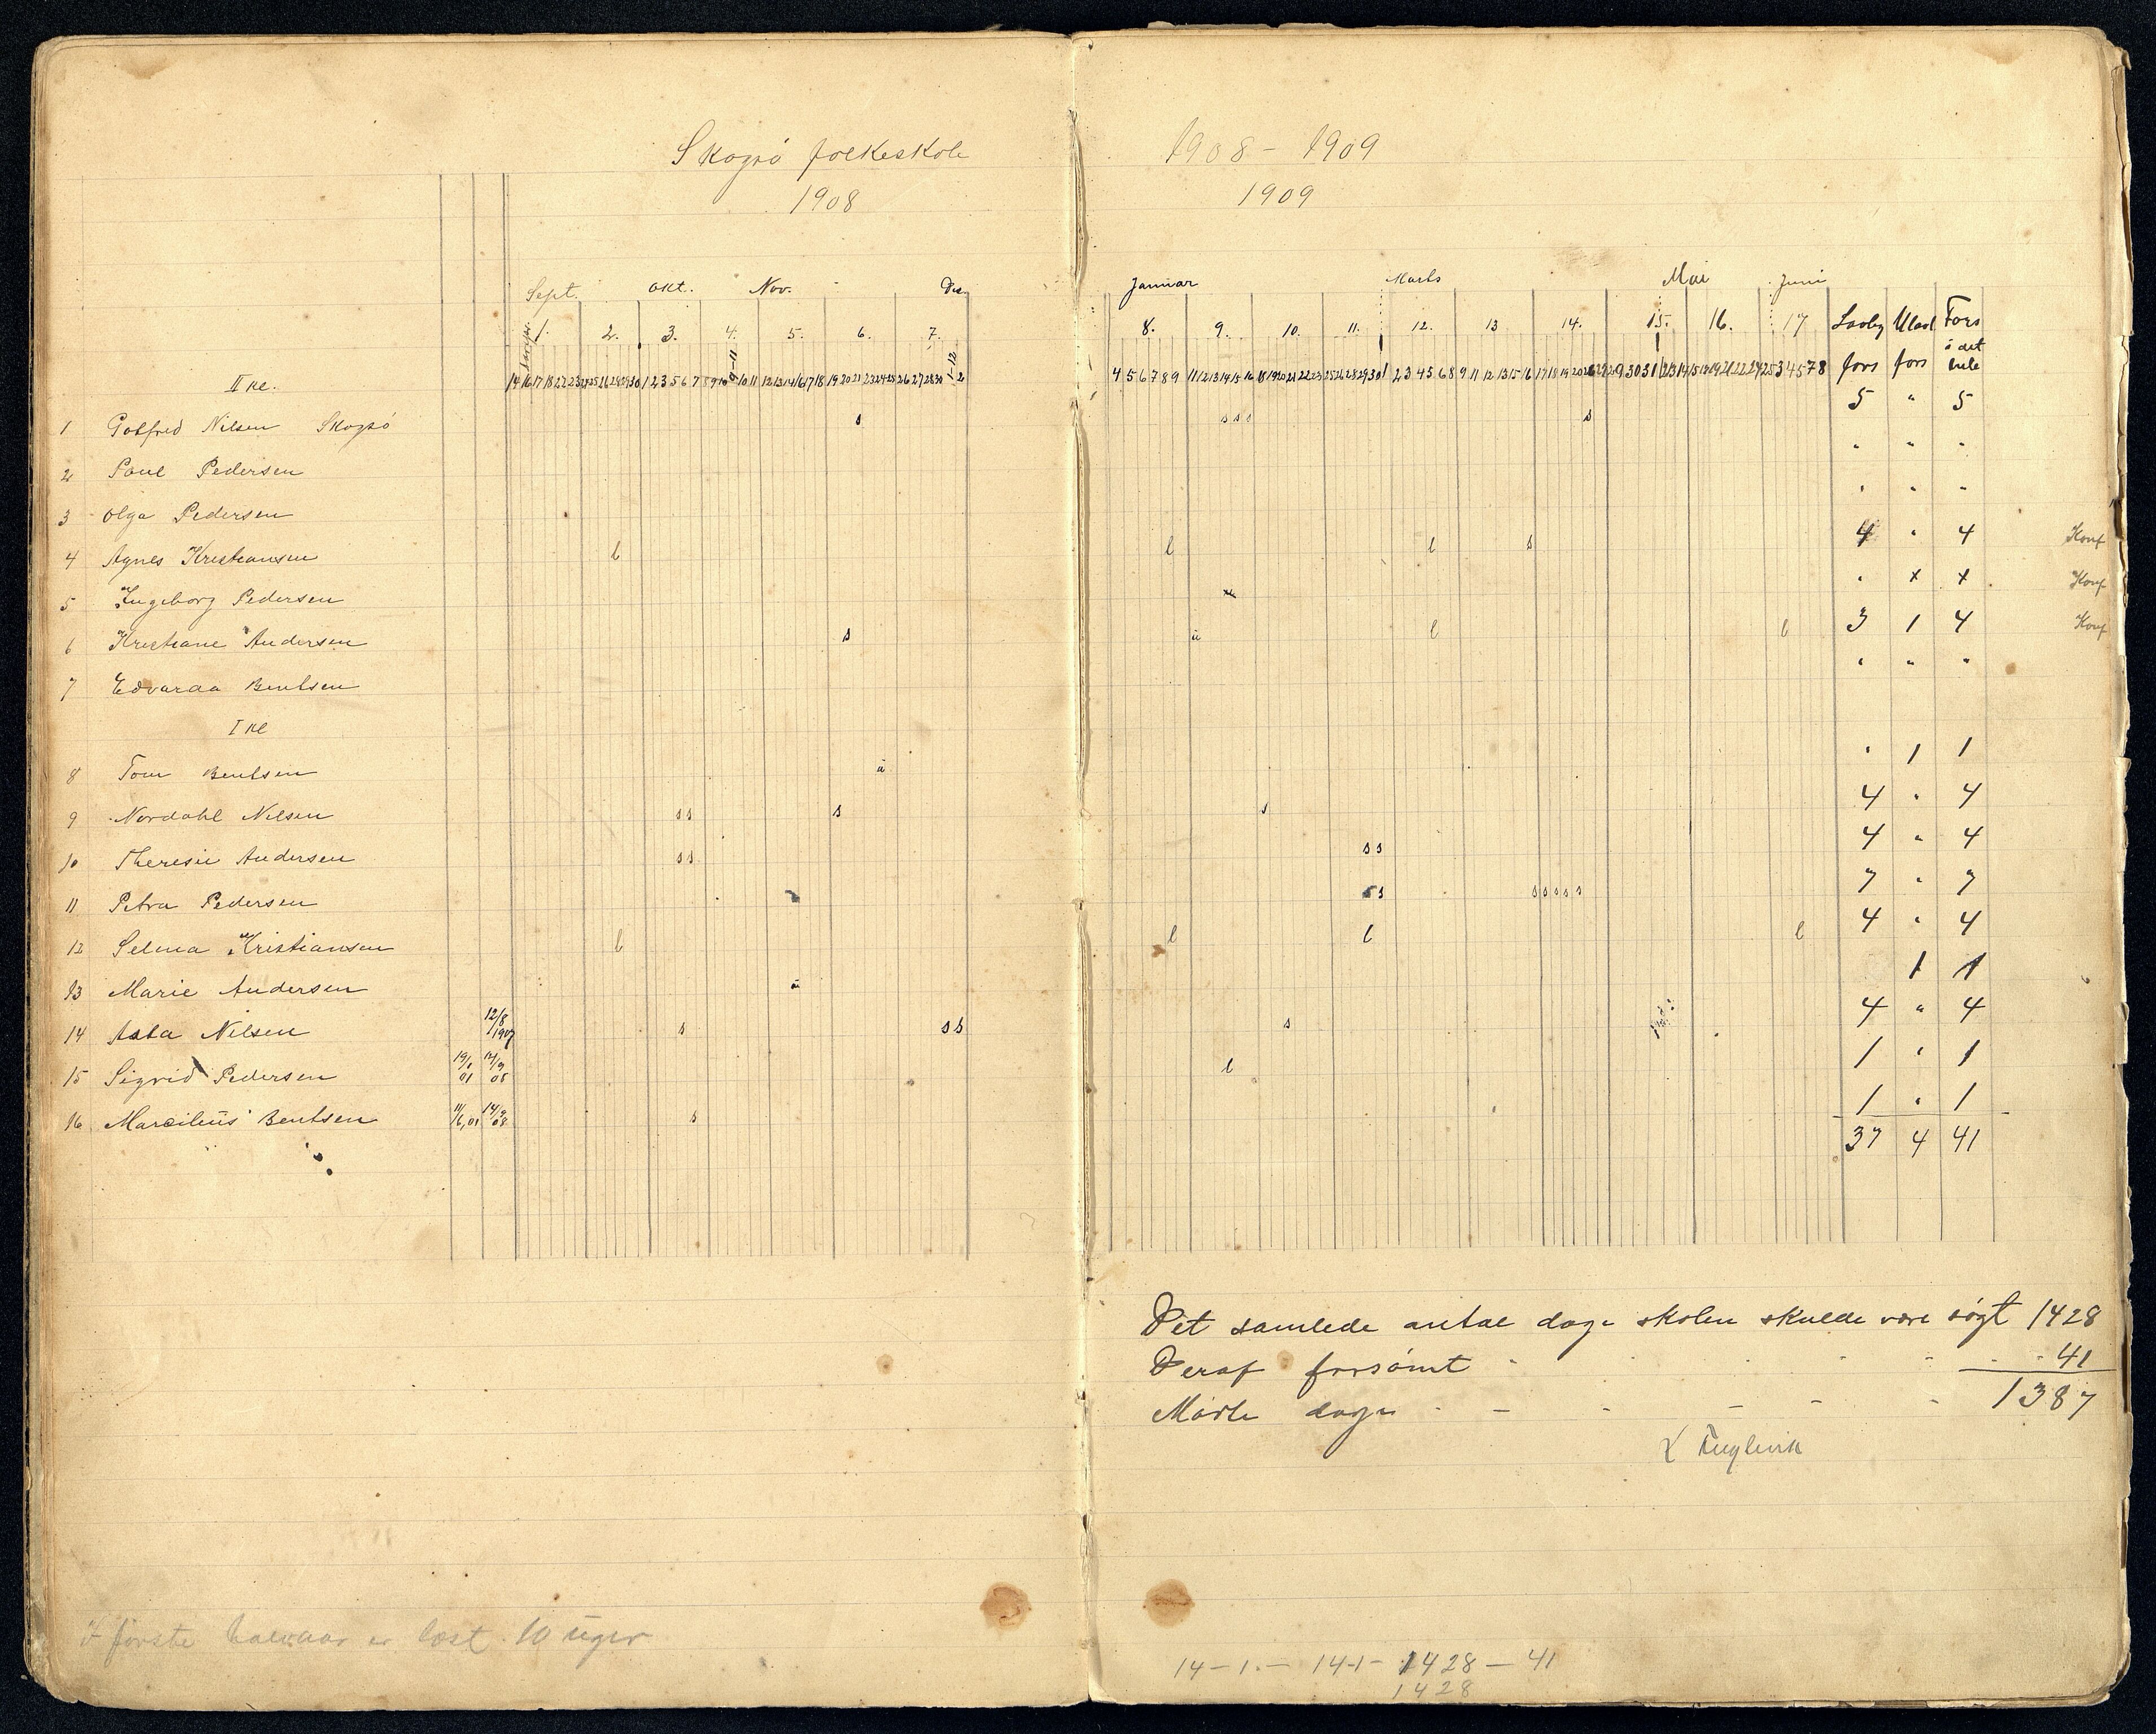 Skogsö folkeskole 1908 - 1909
1908 1909
Sept. Okt. Nov. Des. Januar Marts Mai Juni
1. 2. 3. 4. 5. 6. 7. 8. 9. 10. 11. 12. 13 14. 15. 16. 17 Lovlig Ulovl Fors
fors fors i det hele
II kl.
1 Gotfred Nilsen Skogsö s s s s s 5 " 5
2 Paul Pedersen " " "
3 Olga Pedersen " " "
4 Agnes Kristiansen l l l s 4 " 4 Konf
5 Ingeborg Pedersen " x x Konf
6 Kristiane Andersen s u l l 3 1 4 Konf
7 Edvarda Bentsen " " "
I kl
8 Tom Bentsen u " 1 1
9 Nordahl Nilsen s s s s 4 " 4
10 Theresie Andersen s s s s 4 " 4
11 Petra Pedersen s s s s s s s 7 " 7
12 Selma Kristiansen l l l l 4 " 4
13 Marie Andersen u 1 1
14 Asta Nilsen 12/8 1907 s s s s 4 " 4
15 Sigrid Pedersen 19/1 01 14/9 08 l 1 " 1
16 Marcilius Bentsen 11/6,01 14/9 08 s 1 " 1
37 4 41
Det samlede antal dage skolen skulde være søgt 1428
Deraf forsömt 41
Mödte dage 1387
I förste halvaar er læst 10 uger
14 - 1. - 14-1 - 1428 - 41
1428